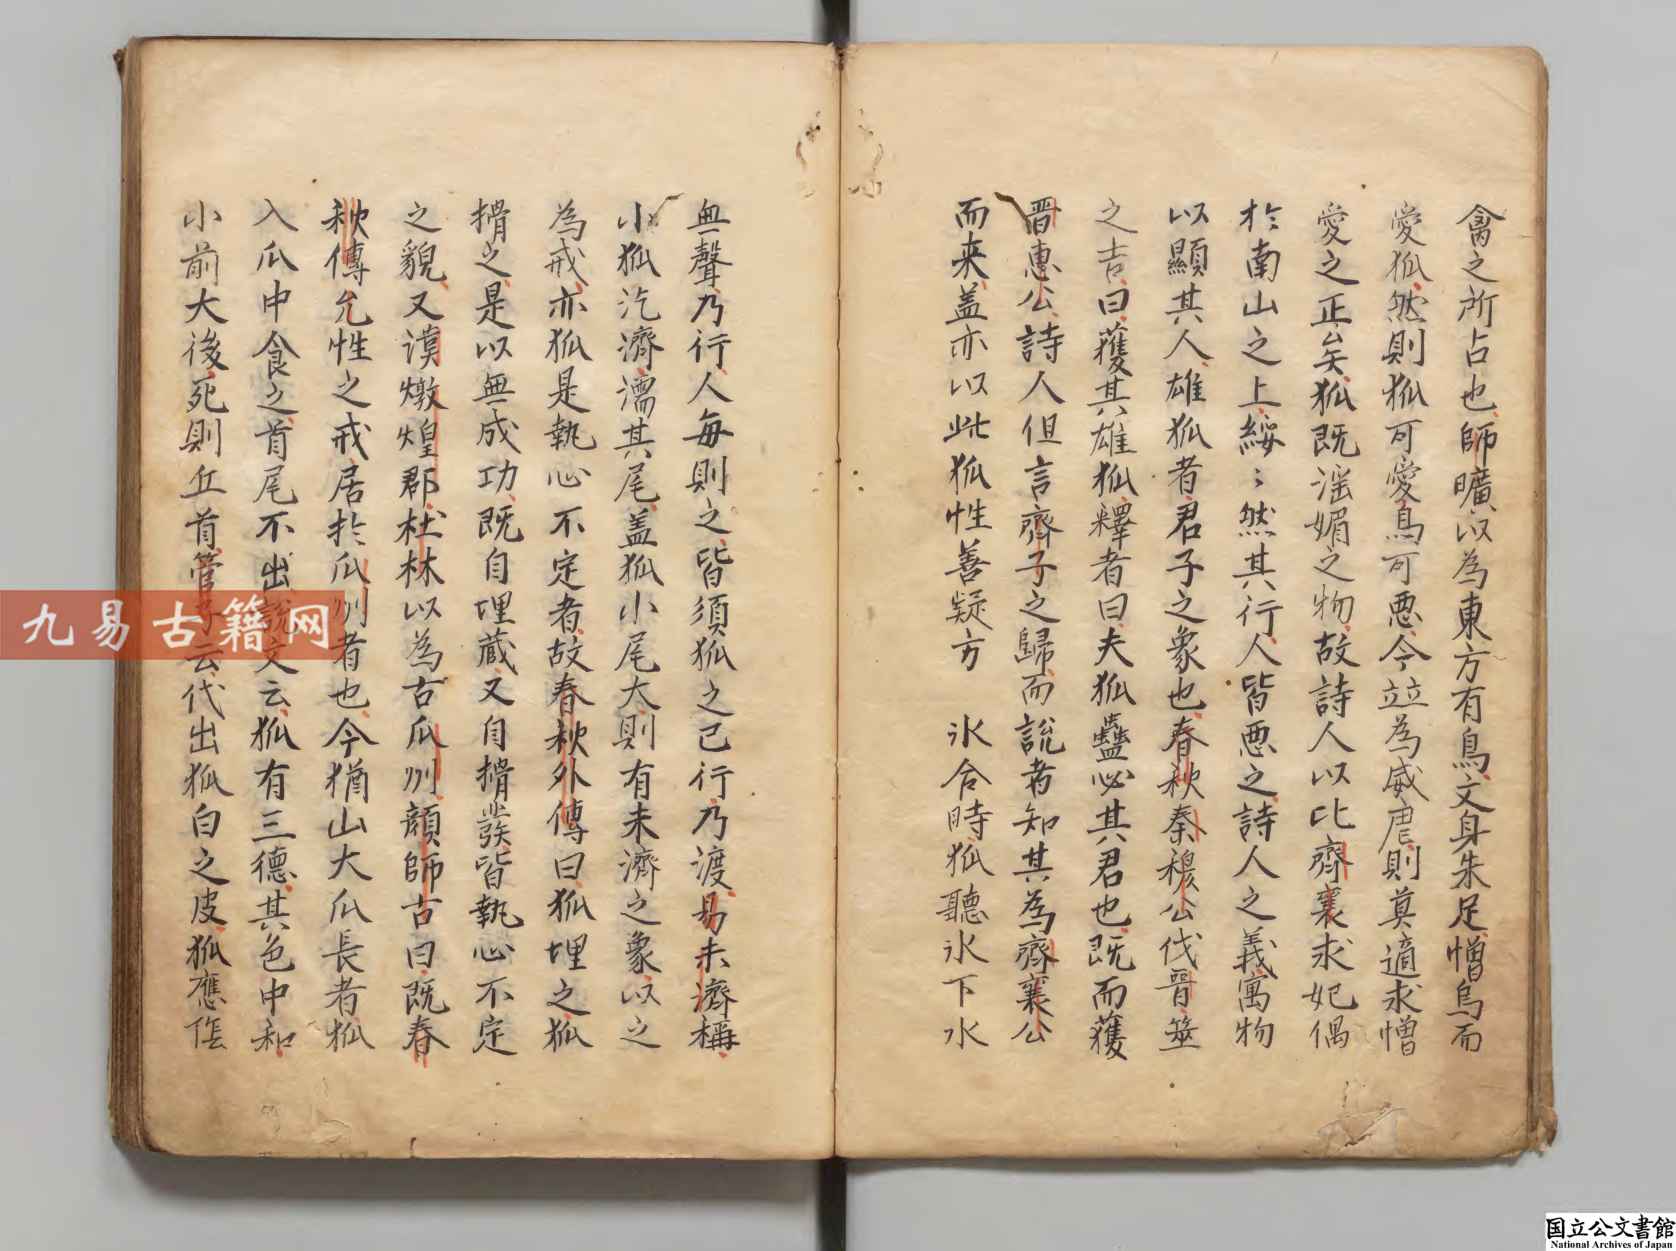 禽之所占也師曠以為東方有鳥文身朱足憎鳥而
愛狐然則狐可愛鳥可悪今竝為威虐則莫適求憎
愛之正矣狐既滛媚之物故詩人以比齊襄求妃偶
於南山之上綏〻然其行人皆悪之詩人之義寓物
以顯其人雄狐者君子之象也春秋秦穆公伐晉筮
之吉曰獲其雄狐釋者曰夫狐蠱必其君也既而獲
晋惠公詩人但言齊子之歸而說者知其為齊襄公
而来盖亦以此狐性善疑方 氷合時狐聽氷下水
無聲乃行人每則之皆須狐之已行乃渡易未濟稱
小狐汔濟濡其尾盖狐小尾大則有未濟之象以之
為戒亦狐是執心不定者故春秋外傳曰狐埋之狐
搰之是以無成功既自埋蔵又自搰發皆執心不定
之貌又漢燉煌郡杜林以為古瓜州顔師古曰既春
秋傳允性之戒居於瓜州者也今猶山大瓜長者狐
入瓜中食之首尾不出說文云狐有三德其色中和
小前大後死則丘首管子云代出狐白之皮狐應陰
九易古籍网
国立公文書館
National Archives of Japan